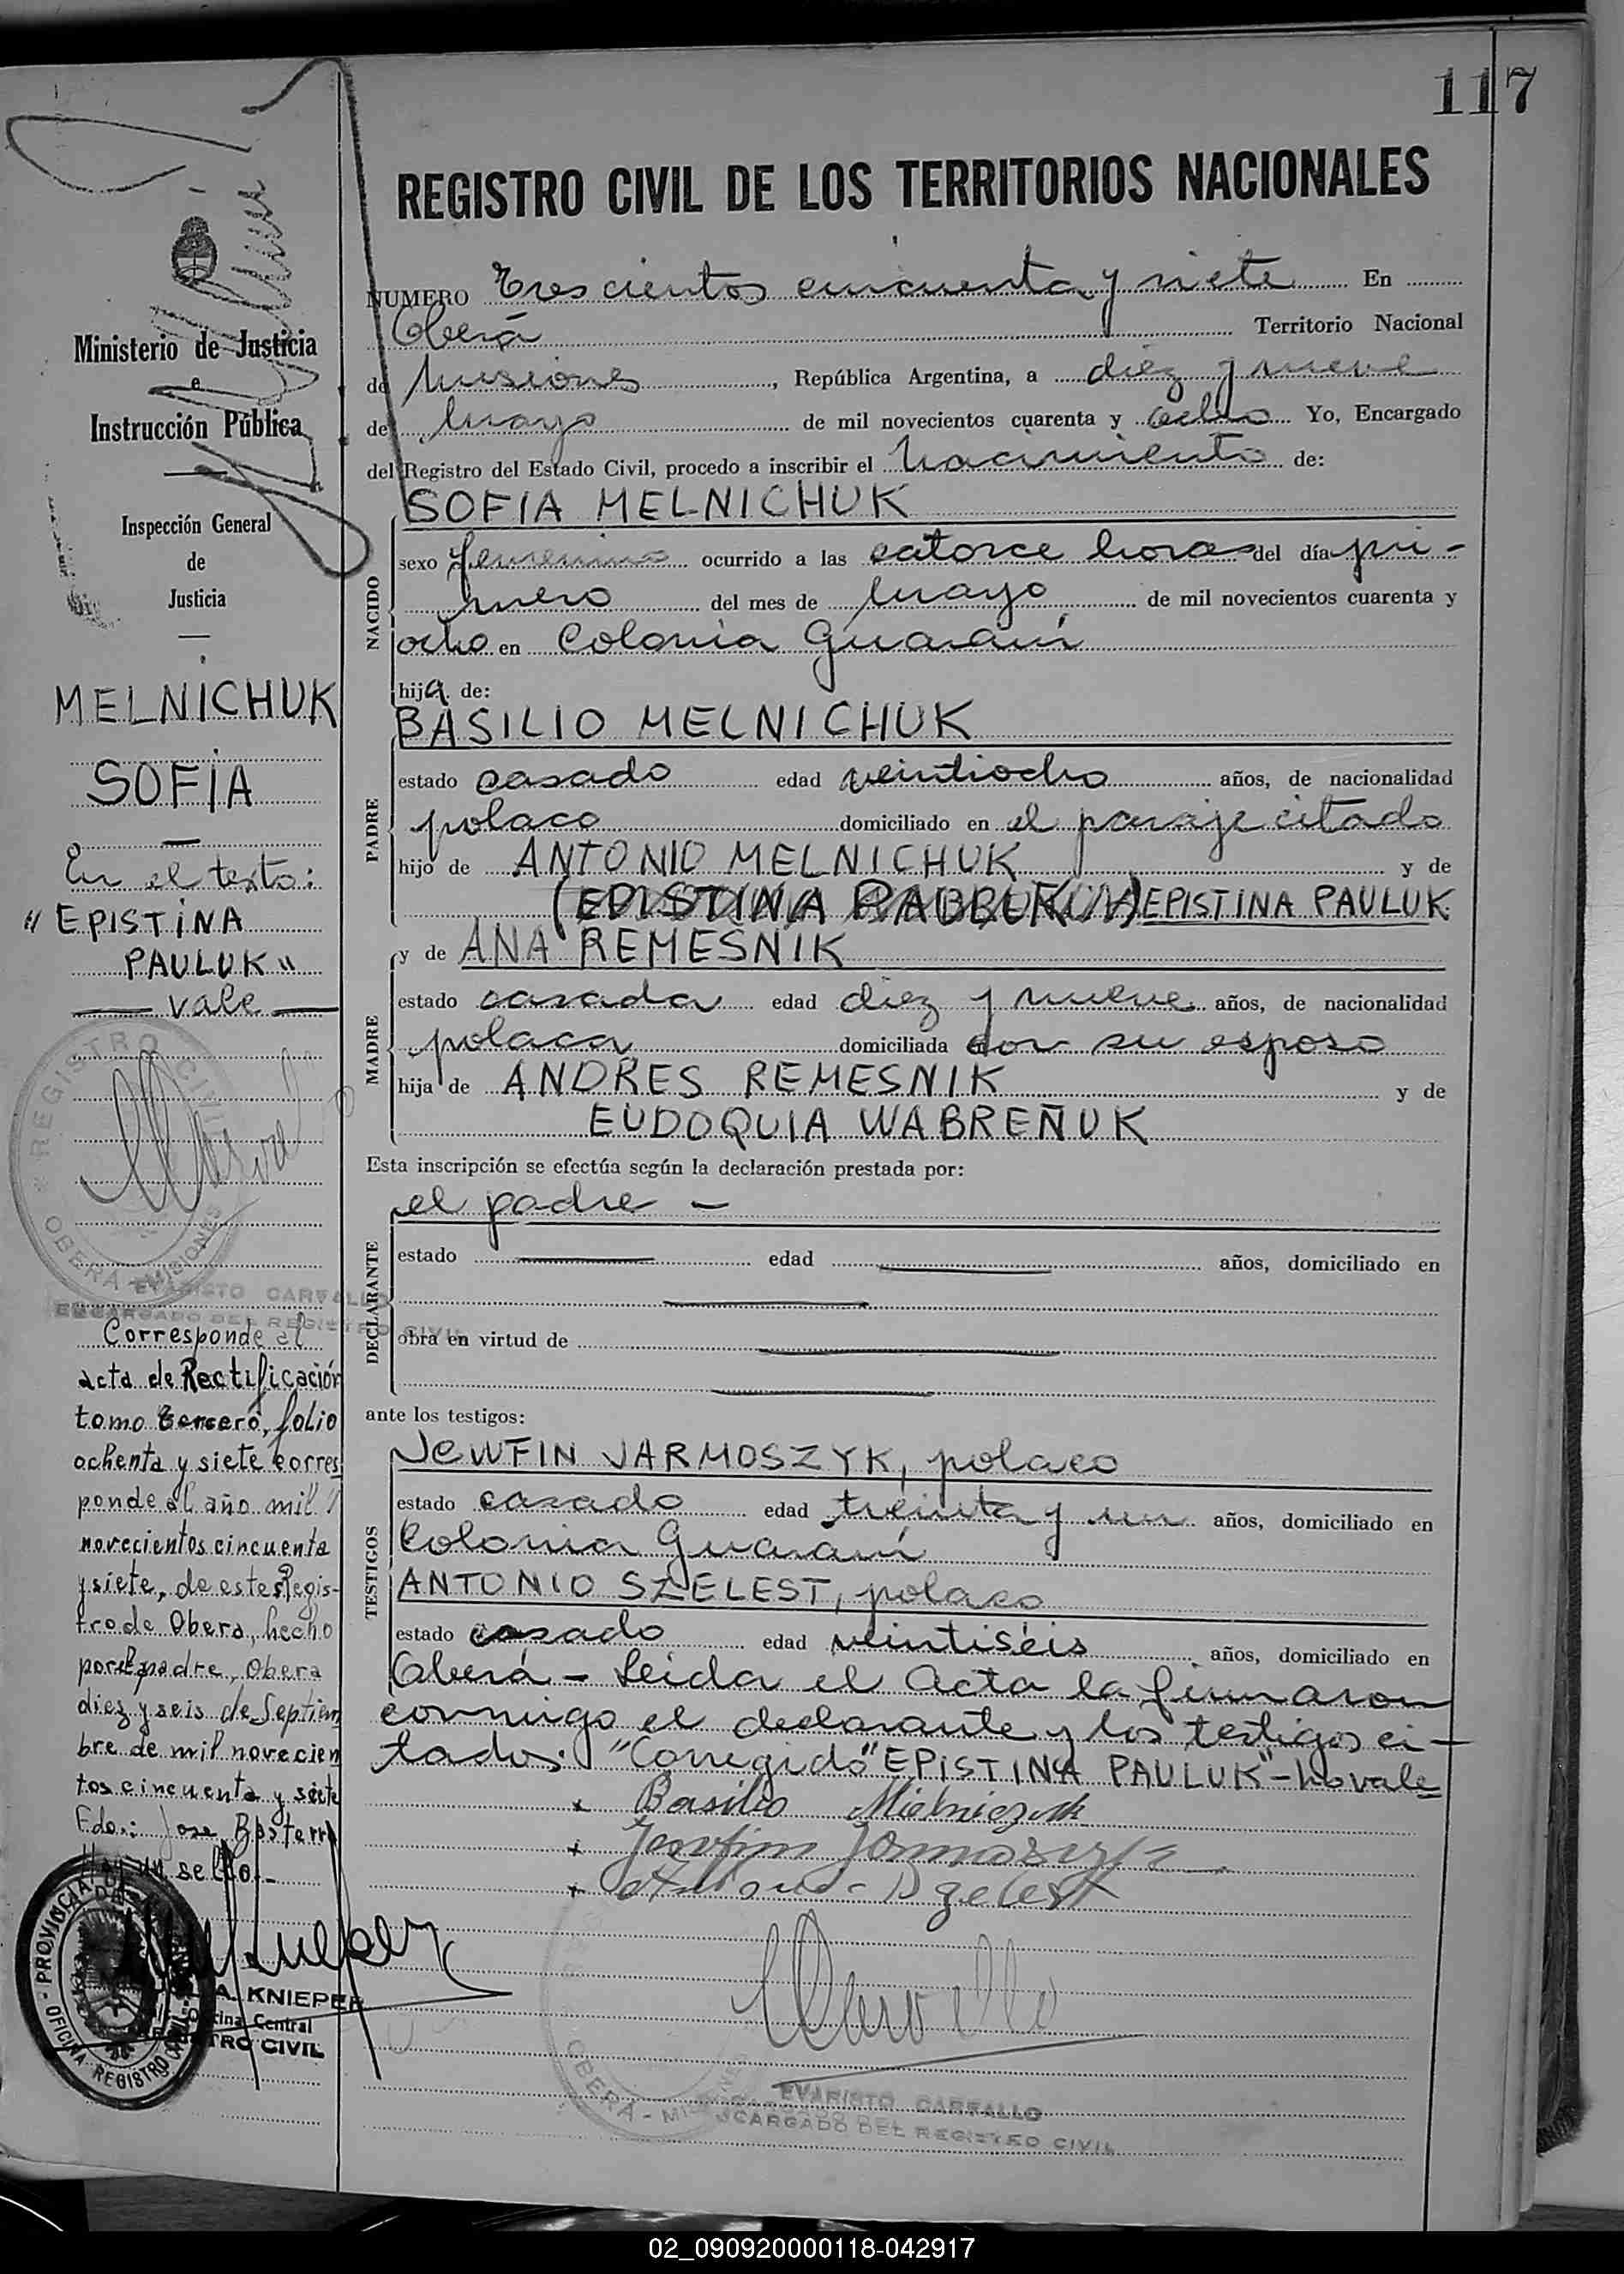 117
REGISTRO CIVIL DE LOS TERRITORIOS NACIONALES
NUMERO Trescientos cincuenta y siete En
Oberá Territorio Nacional
de Misiones, República Argentina, a diez y nueve
de mayo de mil novecientos cuarenta y ocho Yo, Encargado
del Registro del Estado Civil, procedo a inscribir el nacimiento de:
NACIDO
SOFIA MELNICHUK
sexo femenino ocurrido a las catorce horas del día pri-
mero del mes de mayo de mil novecientos cuarenta y
ocho en Colonia Guaraní
hija de:
PADRE
BASILIO MELNICHUK
estado casado edad veintiocho años, de nacionalidad
polaco domiciliado en el paraje citado
hijo de ANTONIO MELNICHUK y de
(EPISTINA ) EPISTINA PAULUK
MADRE
y de ANA REMESNIK
estado casada edad diez y nueve años, de nacionalidad
polaca domiciliada con su esposo
hija de ANDRES REMESNIK y de
EUDOQUIA WABREÑUK
Esta inscripción se efectúa según la declaración prestada por:
DECLARANTE
el padre -
estado edad años, domiciliado en
obra en virtud de
ante los testigos:
TESTIGOS
JEWFIN JARMOSZYK, polaco
estado casado edad treinta y un años, domiciliado en
Colonia Guaraní
ANTONIO SZELEST, polaco
estado casado edad veintiséis años, domiciliado en
Oberá - Leida el acta la firmaron
conmigo el declarante y los testigos ci-
tados. "Corregido" EPISTINA PAULUK" - no vale
x Basilio Mielniczuk
x
x Szelest
OBERÁ - MISIONES
EVARISTO CARVALLO
ENCARGADO DEL REGISTRO CIVIL
Ministerio de Justicia
e
Instrucción Pública
Inspección General
de
Justicia
MELNICHUK
SOFÍA
En el texto:
"EPISTINA
PAULUK"
vale
REGISTRO CIVIL
OBERÁ - MISIONES
EVARISTO CARVALLO
ENCARGADO DEL REGISTRO CIVIL
Corresponde el
acta de Rectificación
tomo tercero, folio
ochenta y siete corres
ponde al año mil
novecientos cincuenta
y siete, de este Regis-
tro de Obera, hecho
por el padre, Obera
diez y seis de Septiem
bre de mil novecien
tos cincuenta y siete
Fdo.: Jose Basterra
Hay un sello.-
PROVINCIA DE
OFICINA REGISTRO CIVIL
A. KNIEPER
Oficina Central
REGISTRO CIVIL
02_090920000118-042917